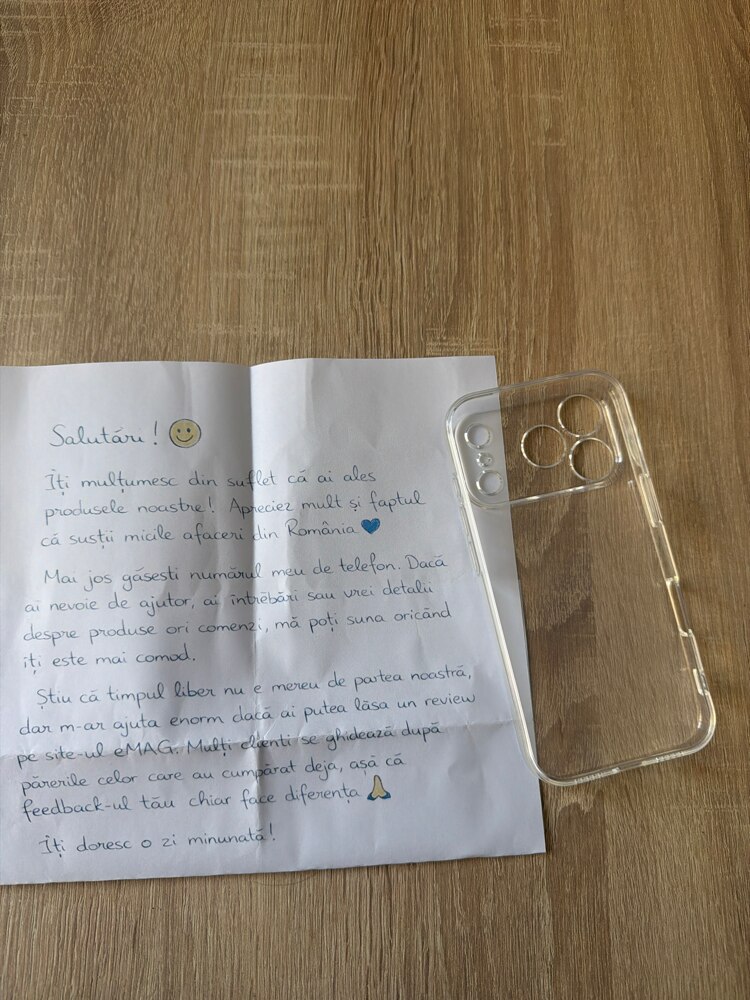 Salutări! 🙂
Îți mulțumesc din suflet că ai ales
produsele noastre! Apreciez mult și faptul
că susții micile afaceri din România 💙
Mai jos găsesti numărul meu de telefon. Dacă
ai nevoie de ajutor, ai întrebări sau vrei detalii
despre produse ori comenzi, mă poți suna oricând
iți este mai comod.
Știu că timpul liber nu e mereu de partea noastră,
dar m-ar ajuta enorm dacă ai putea lăsa un review
pe site-ul eMAG. Mulți clienti se ghidează după
părerile celor care au cumpărat deja, așa că
feedback-ul tău chiar face diferența 🙏
Îți doresc o zi minunată!